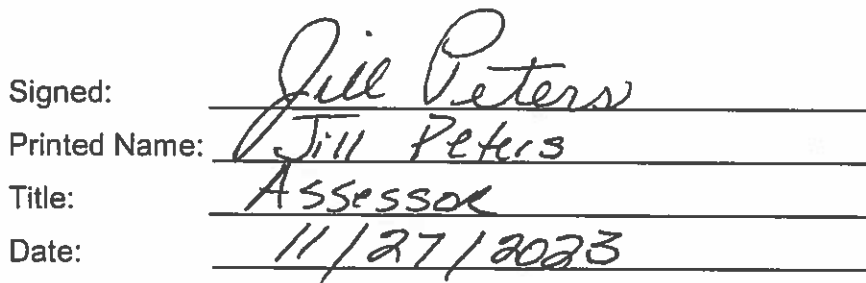 Signed: Jill Peters
Printed Name: Jill Peters
Title: Assessor
Date: 11/27/2023